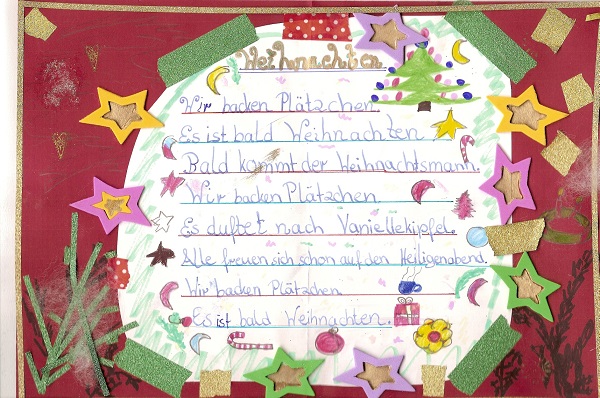 Weihnachten
Wir backen Plätzchen.
Es ist bald Weihnachten,
Bald kommt der Weihnachtsmann.
Wir backen Plätzchen
Es duftet nach Vaniellekipfel.
Alle freuen sich schon auf den Heiligenabend.
Wir backen Plätzchen
Es ist bald Weihnachten.